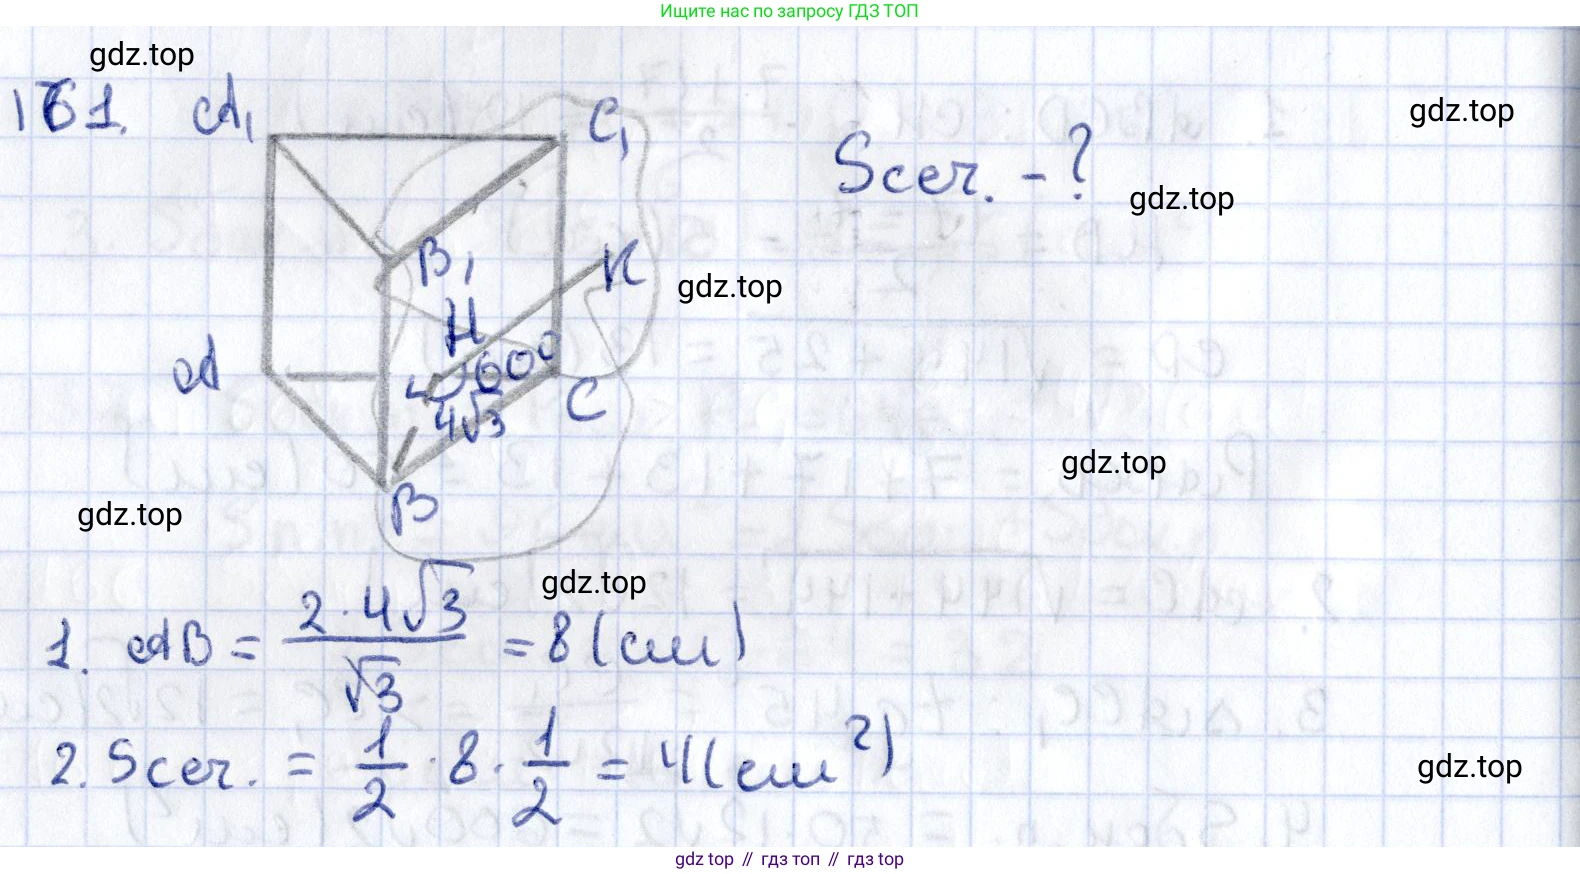 Ищите нас по запросу ГДЗ ТОП
gdz.top
161. A₁ C₁
gdz.top
Sсеч. - ?
gdz.top
B₁ K
gdz.top
H
60°
A
C
4√3
gdz.top
B
gdz.top
gdz.top
1. AB = 2·4√3/√3 = 8 (см)
2. Sсеч. = 1/2 · 8 · 1/2 = 4 (см²)
gdz.top
gdz top // гдз топ // гдз top